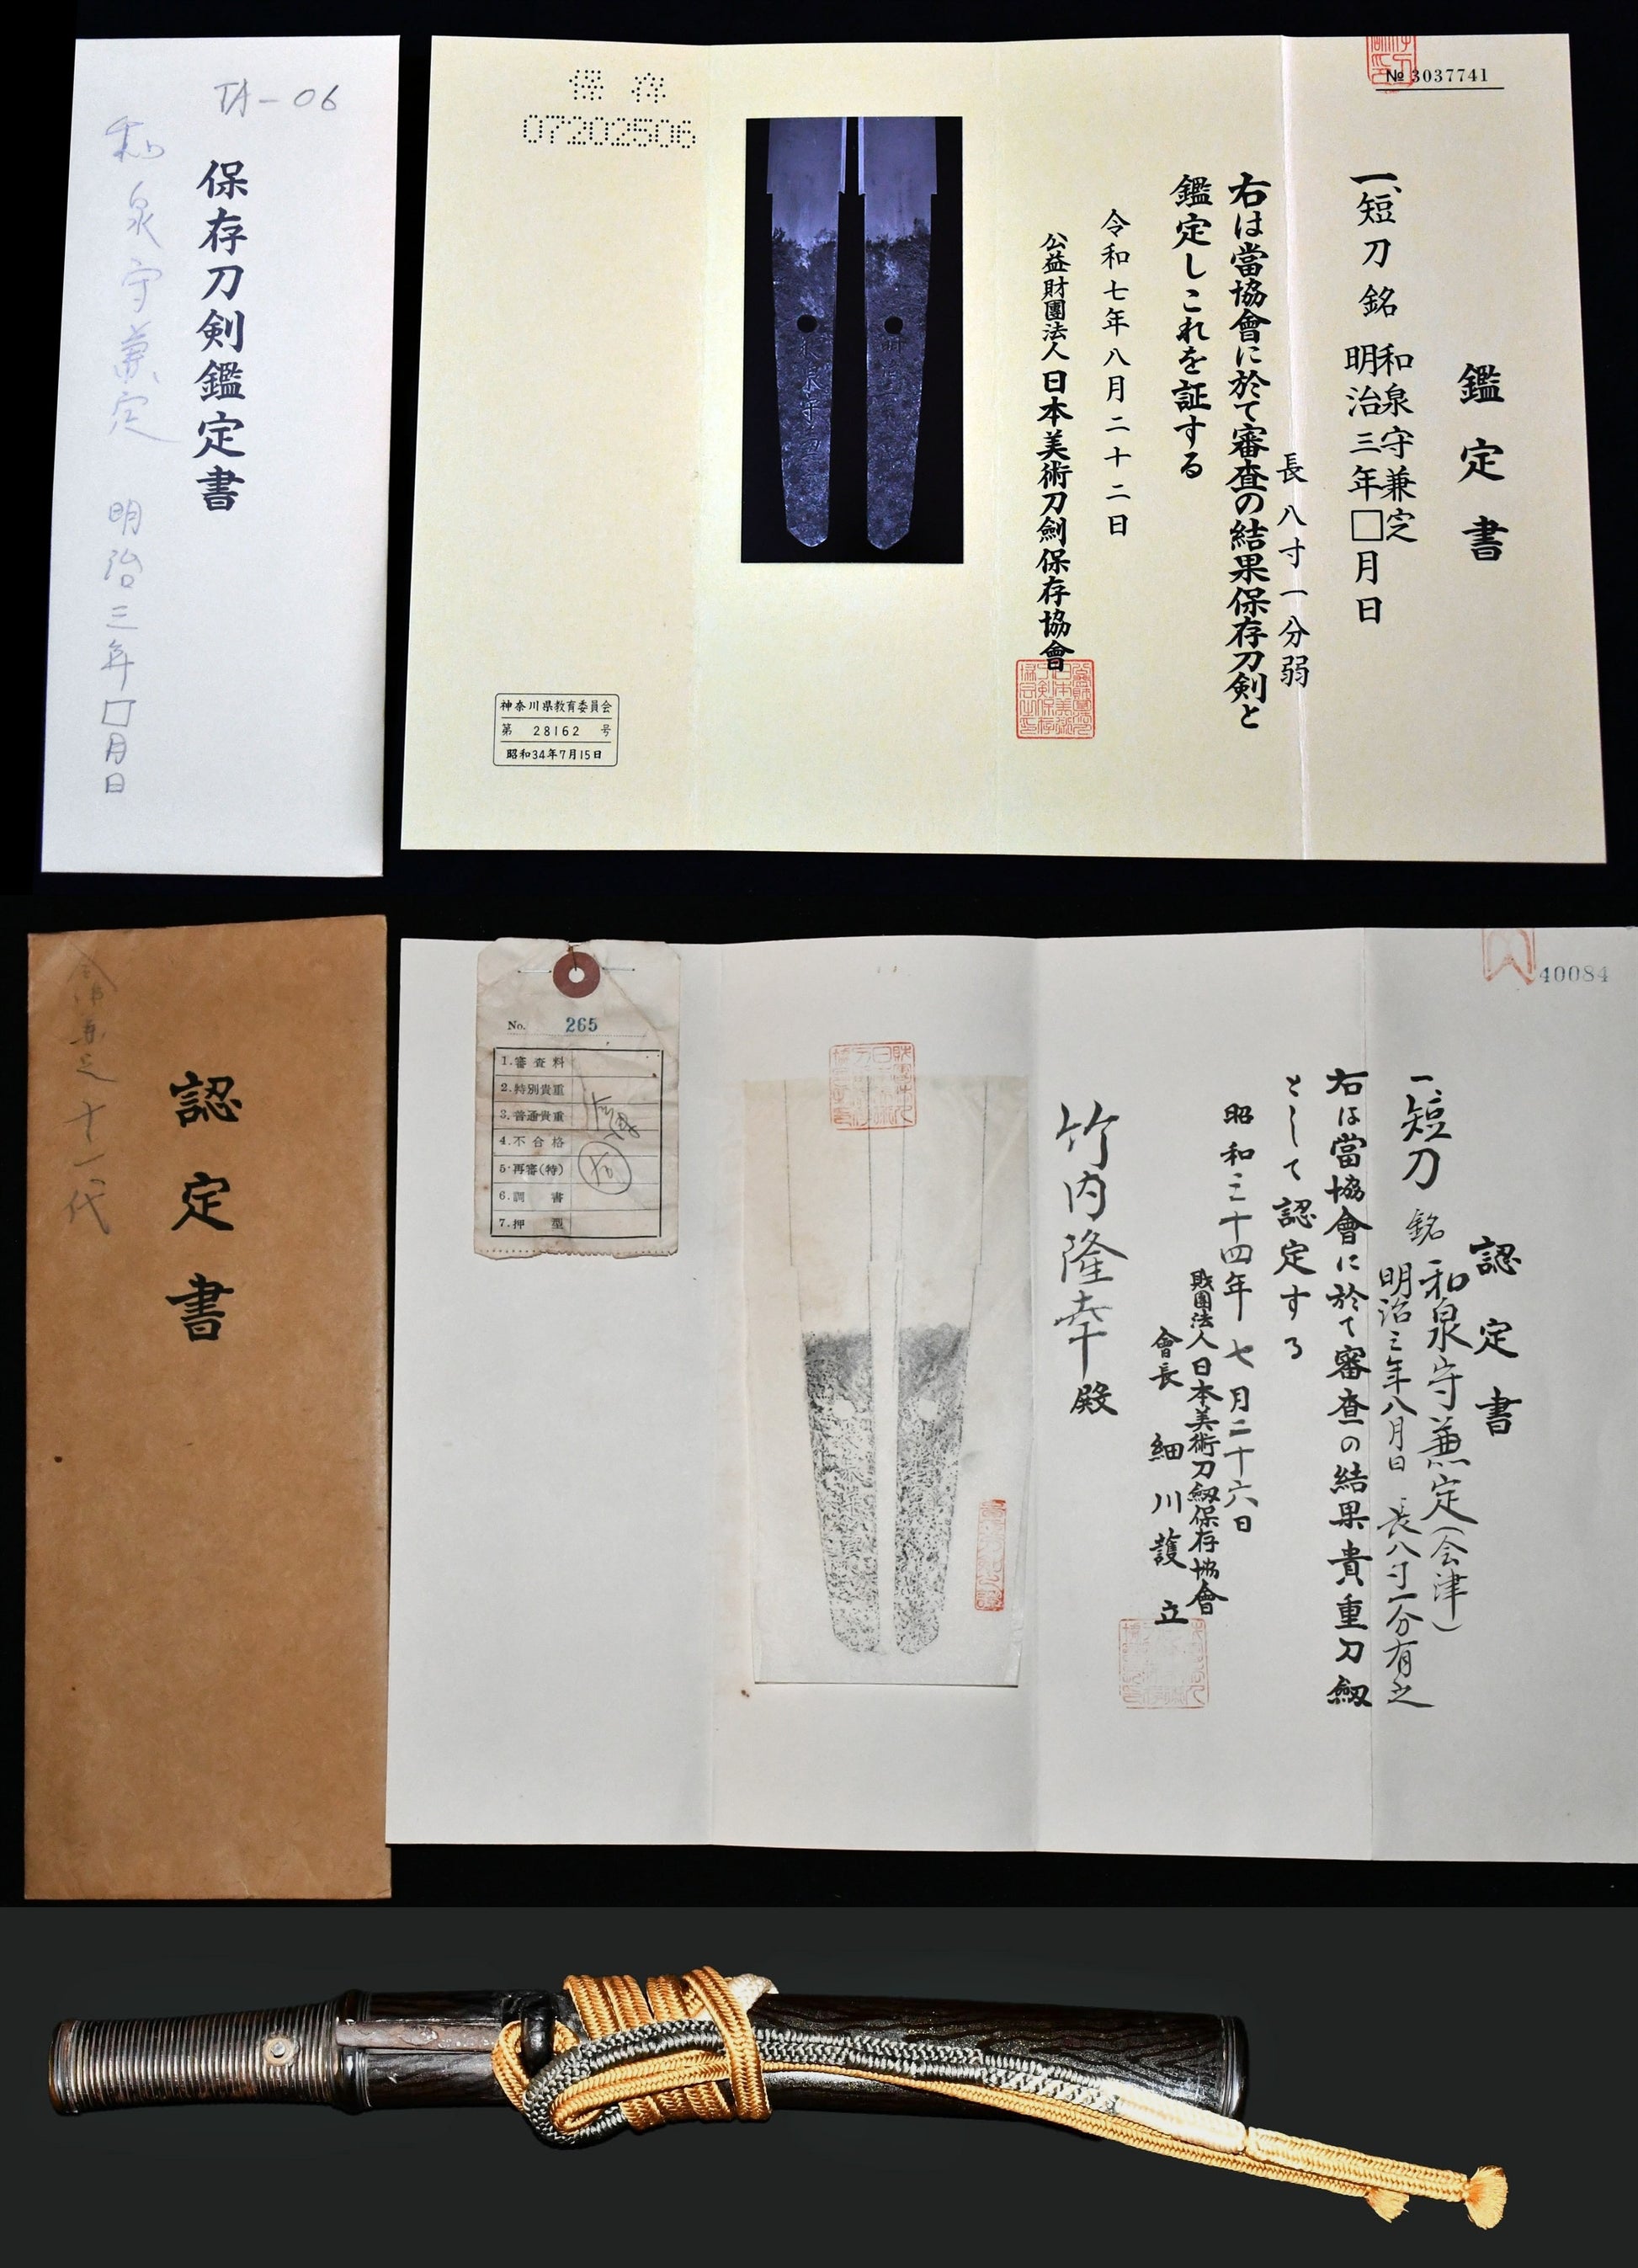 TA-06
保存刀剣鑑定書
和泉守兼定 明治三年□月日
№ 3037741
鑑定書
一、短刀 銘 和泉守兼定
明治三年□月日
長 八寸一分弱
右は當協會に於て審査の結果保存刀剣と
鑑定しこれを証する
令和七年八月二十二日
公益財團法人 日本美術刀劍保存協會
保存
07202506
神奈川県教育委員会
第 28162 号
昭和34年7月15日
認定書
十一代
40084
認定書
一、短刀 銘 和泉守兼定(会津)
明治三年八月日 長八寸一分有之
右は當協會に於て審査の結果貴重刀劔
として認定する
昭和三十四年七月二十六日
財團法人日本美術刀劔保存協會
會長 細川護立
竹内隆幸殿
No. 265
1.審査料
2.特別貴重
3.普通貴重
4.不合格
5.再審(特)
6.調書
7.押型